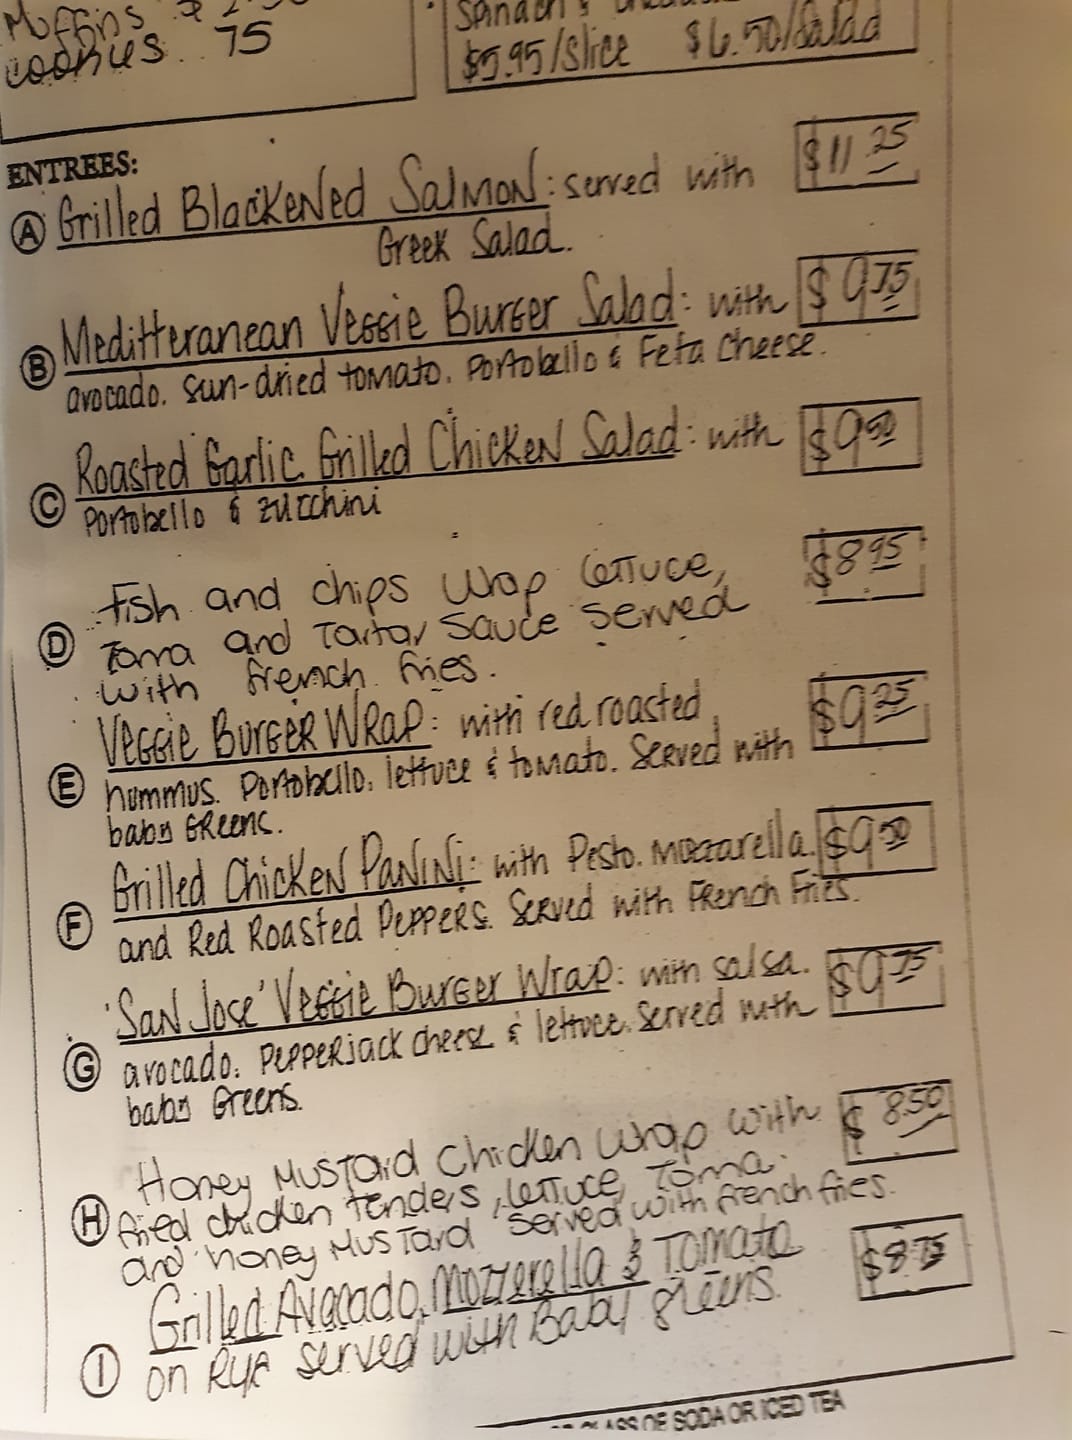 Muffins
cookies .75
Spinach &
$5.95/slice $6.50/salad
ENTREES:
A Grilled Blackened Salmon: served with $11.25
Greek Salad.
B Meditteranean Veggie Burger Salad: with $9.75
avocado. sun-dried tomato. Portobello & Feta cheese.
C Roasted Garlic Grilled Chicken Salad: with $9.50
Portobello & zucchini
Fish and chips wrap lettuce, $8.95
D Toma and Tartar Sauce served
with french fries.
Veggie Burger Wrap: with red roasted $9.25
E hummus. Portobello. lettuce & tomato. Served with
baby Greens.
Grilled Chicken Panini: with Pesto. Mozzarella. $9.50
F and Red Roasted Peppers. Served with French Fries.
'San Jose' Veggie Burger Wrap: with salsa. $9.75
G avocado. Pepperjack cheese & lettuce. Served with
baby Greens.
Honey Mustard Chicken wrap with $8.50
H fried chicken tenders, lettuce, Toma.
and honey Mustard served with french fries.
Grilled Avocado, Mozzerella & Tomato $8.75
I on Rye served with Baby greens.
GLASS OF SODA OR ICED TEA